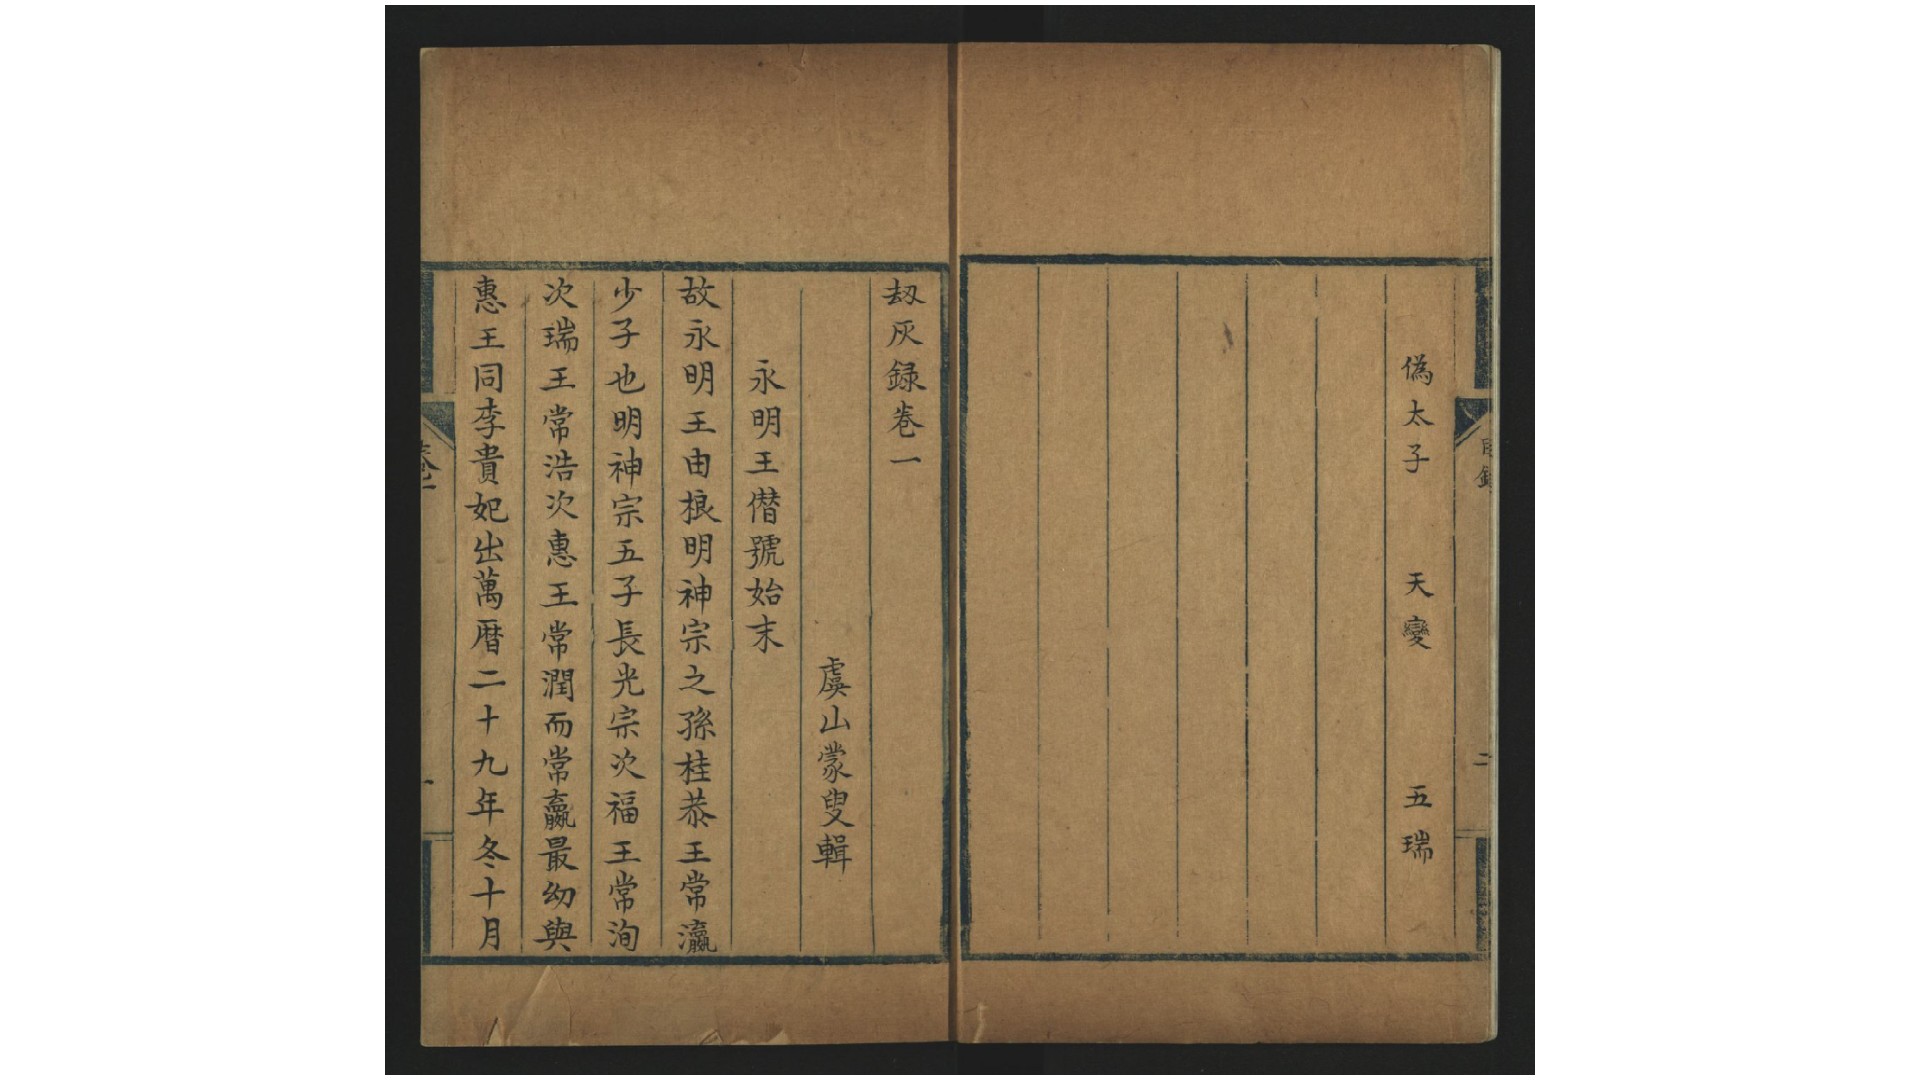 偽太子　天變　五瑞
目錄
二
刼灰録卷一
虞山蒙叟輯
永明王僭號始末
故永明王由榔明神宗之孫桂恭王常瀛
少子也明神宗五子長光宗次福王常洵
次瑞王常浩次惠王常潤而常嬴最幼與
惠王同李貴妃出萬曆二十九年冬十月
卷一
一